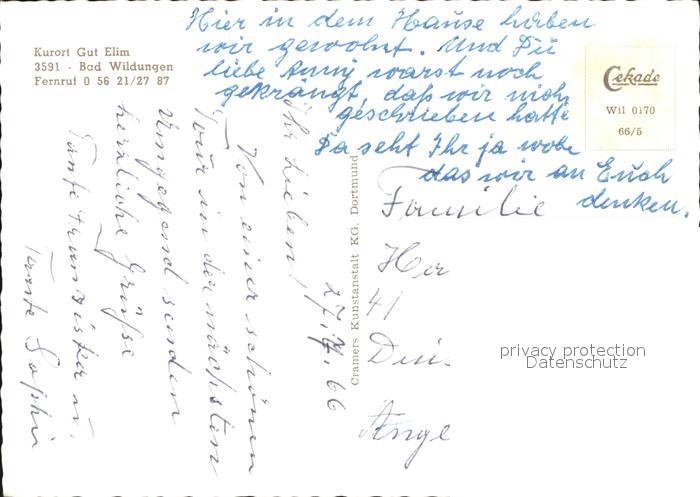 Kurort Gut Elim
3591 - Bad Wildungen
Fernruf 0 56 21/27 87
Hier in dem Hause haben
wir gewohnt. Und Du
liebe Anny warst noch
gekrängt, daß wir nich
geschrieben hatte
Da seht Ihr ja wohl
das wir an Euch
denken.
Cekade
Wil 0170
66/5
Cramers Kunstanstalt KG. Dortmund
27. 7. 66
Ihr Lieben!
Von einer schönen
Tour in der nächsten
Umgegend senden
herzliche Grüße
Tante Franziska u.
Tante Sophie
Familie
Her
41
Ange
privacy protection
Datenschutz